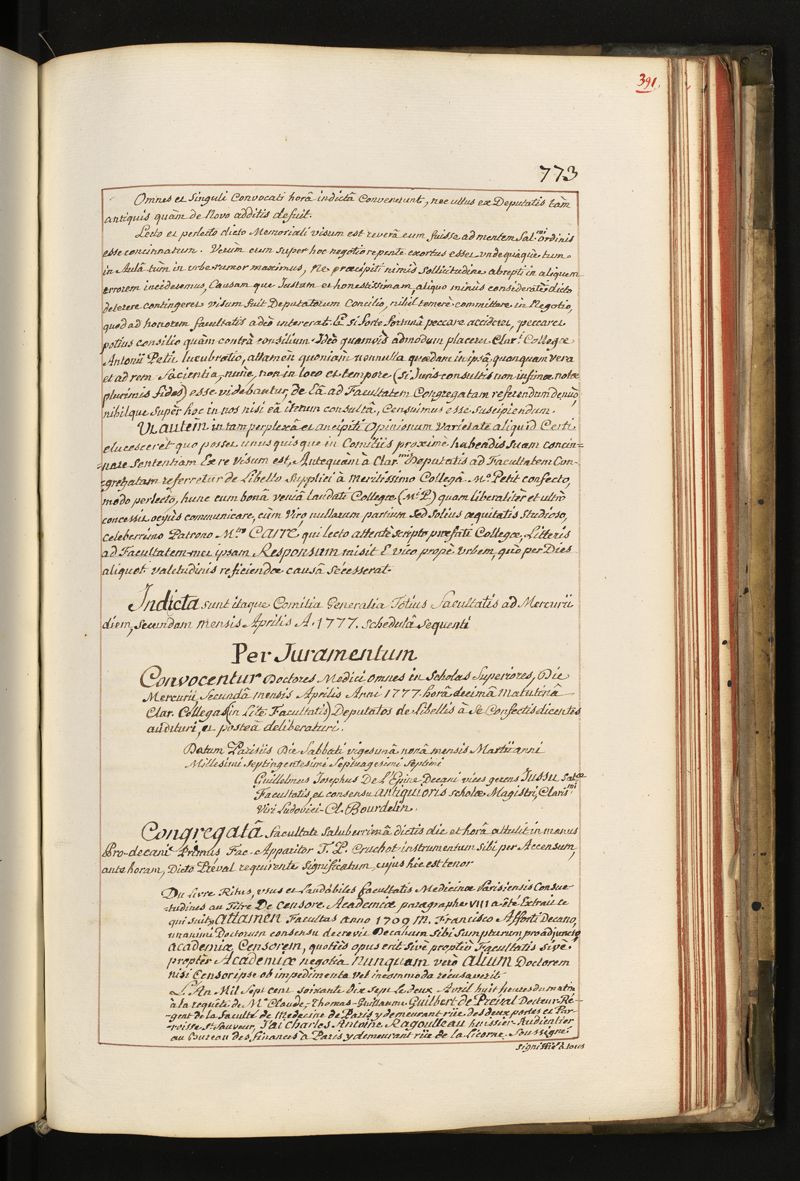 391.
773
Omnes et Singuli Convocati horâ indictâ Convenerunt, nec ullus ex Deputatis tàm
antiquis quàm de Novo additis defuit.
Lecto et perlecto dicto Memoriali visum est reverâ eum fuisse ad mentem Sal.mi ordinis
esse concinnatum. Verùm cum super hoc negotio repente exortus esset undequàque tum
in Aulâ tùm in urbe rumor maximus, ne præcipiti nimis Sollicitudine abrepti in aliquem
errorem incideremus, Causam que Justam et honestissimam aliquo minùs consideratè dicto
deterere contingeret visum fuit Deputatorum Concilio, nihil temerè committere in Negotio,
quod ad honorem facultatis adeò intererat Si forte fortunâ peccare accideret, peccaret
potius consilio quàm contrà consilium. Ideò quamvis admodùm placeret Clar.i Collegæ
Antonii Petit lucubratio, attamen quoniam nonnulla quædam in ipsâ, quanquam vera
et ad rem facientia, nunc, non in loco et tempore (Si Juris consultis non infimæ notæ
plurimis fides) esse videbantur, de Eâ ad Facultatem Congregatam referendum denuò,
nihil que Supèr hoc in nos nisi eâ iterum consultâ, Censuimus esse Suscipiendum.
Ut autem in tam perplexâ et ancipiti Opinionum varietate aliquid Certi
elucesceret quo posset unusquisque in Comitiis proximè habendis Suam concin=
=nare Sententiam Ex re visum est, Antequàm à Clar.mis Deputatis ad Facultatem Con=
gregatam referretur de Libello Supplici à meritissimo Collegâ M.o Petit confecto,
modo perlecto, hunc cum bonâ veniâ laudati Collegæ (M.i P.) quam liberaliter et ultrò
concessit ocyùs communicare, cùm Viro nullarum partium Sed Solius æquitatis Studioso,
celeberrimo Patrono M.tro CARRÉ, qui lecto attentè scripto præfati Collegæ, Litteris
ad Facultatem ipsam Responsum misit E vico propè Urbem, quò per Dies
aliquot valitudinis reficiendæ causâ Secesserat
Indicta sunt itaque Comitia Generalia Totius Facultatis ad Mercurii
diem, secundam mensis Aprilis A. 1777. Schedulâ Sequenti
Per Juramentum
Convocentur Doctores Medici omnes in Scholas Superiores, Die
Mercurii, Secundâ mensis Aprilis Anni 1777 horâ decimâ Matutinâ
Clar. Collegas (in Lite Facultatis) Deputatos de libellis à Se Confectis dicentes
audituri, et posteà deliberaturi.
Datum Parisiis Die Sabbati vigesimâ nonâ mensis Martii anni
Millesimi Septingentesimi Septuagesimi Septimi
Guillelmus Josephus De L'Epine Decani vices gerens Jussu Sal.
Facultatis, et consensu antiquioris scholæ Magistri, Claris.mi
Viri Ludovici-Cl. Bourdelin.
Congregatâ facultate Saluberrimâ dictis die et horâ attulit in manus
Pro-decani Primus Fac. Apparitor T. P. Cruchot instrumentum Sibi per Accensum,
ante horam, Dicto Préval requirente Significatum, cujus hic est tenor
Du Livre Ritus, usus et Laudabiles facultatis Medicinæ Parisiensis Consue
tudines au Titre De Censore Academiæ paragraphe VIII a été Extrait ce
qui suit, attamen Facultas anno 1709 M. Francisco Afforti Decano,
unanimi Doctorum consensu decrevit Decanum Sibi Sumpturum pro adjuncto
academiæ Censorem, quotiès opus erit Sivè proptèr Facultatis sivè
proptèr Academiæ negotia Nunquam verò alium Doctorem
nisi Censor ipse ob impedimenta vel incommoda recusaverit
L'An Mil Sept Cent Soixante Dix Sept Le deux Avril huit heures du matin
à la requête de M.e Claude-Thomas-Guillaume Guilbert de Préval Docteur Ré-
gent de la faculté de Medecine de Paris y demeurant rüe des deux portes et Par-
roisse S.t Sauveur J'ai Charles Antoine Ragoulleau huissier Audiencier
au Bureau des finances à Paris y demeurant rüe de la Licorne Soussigné
signiffié à tous